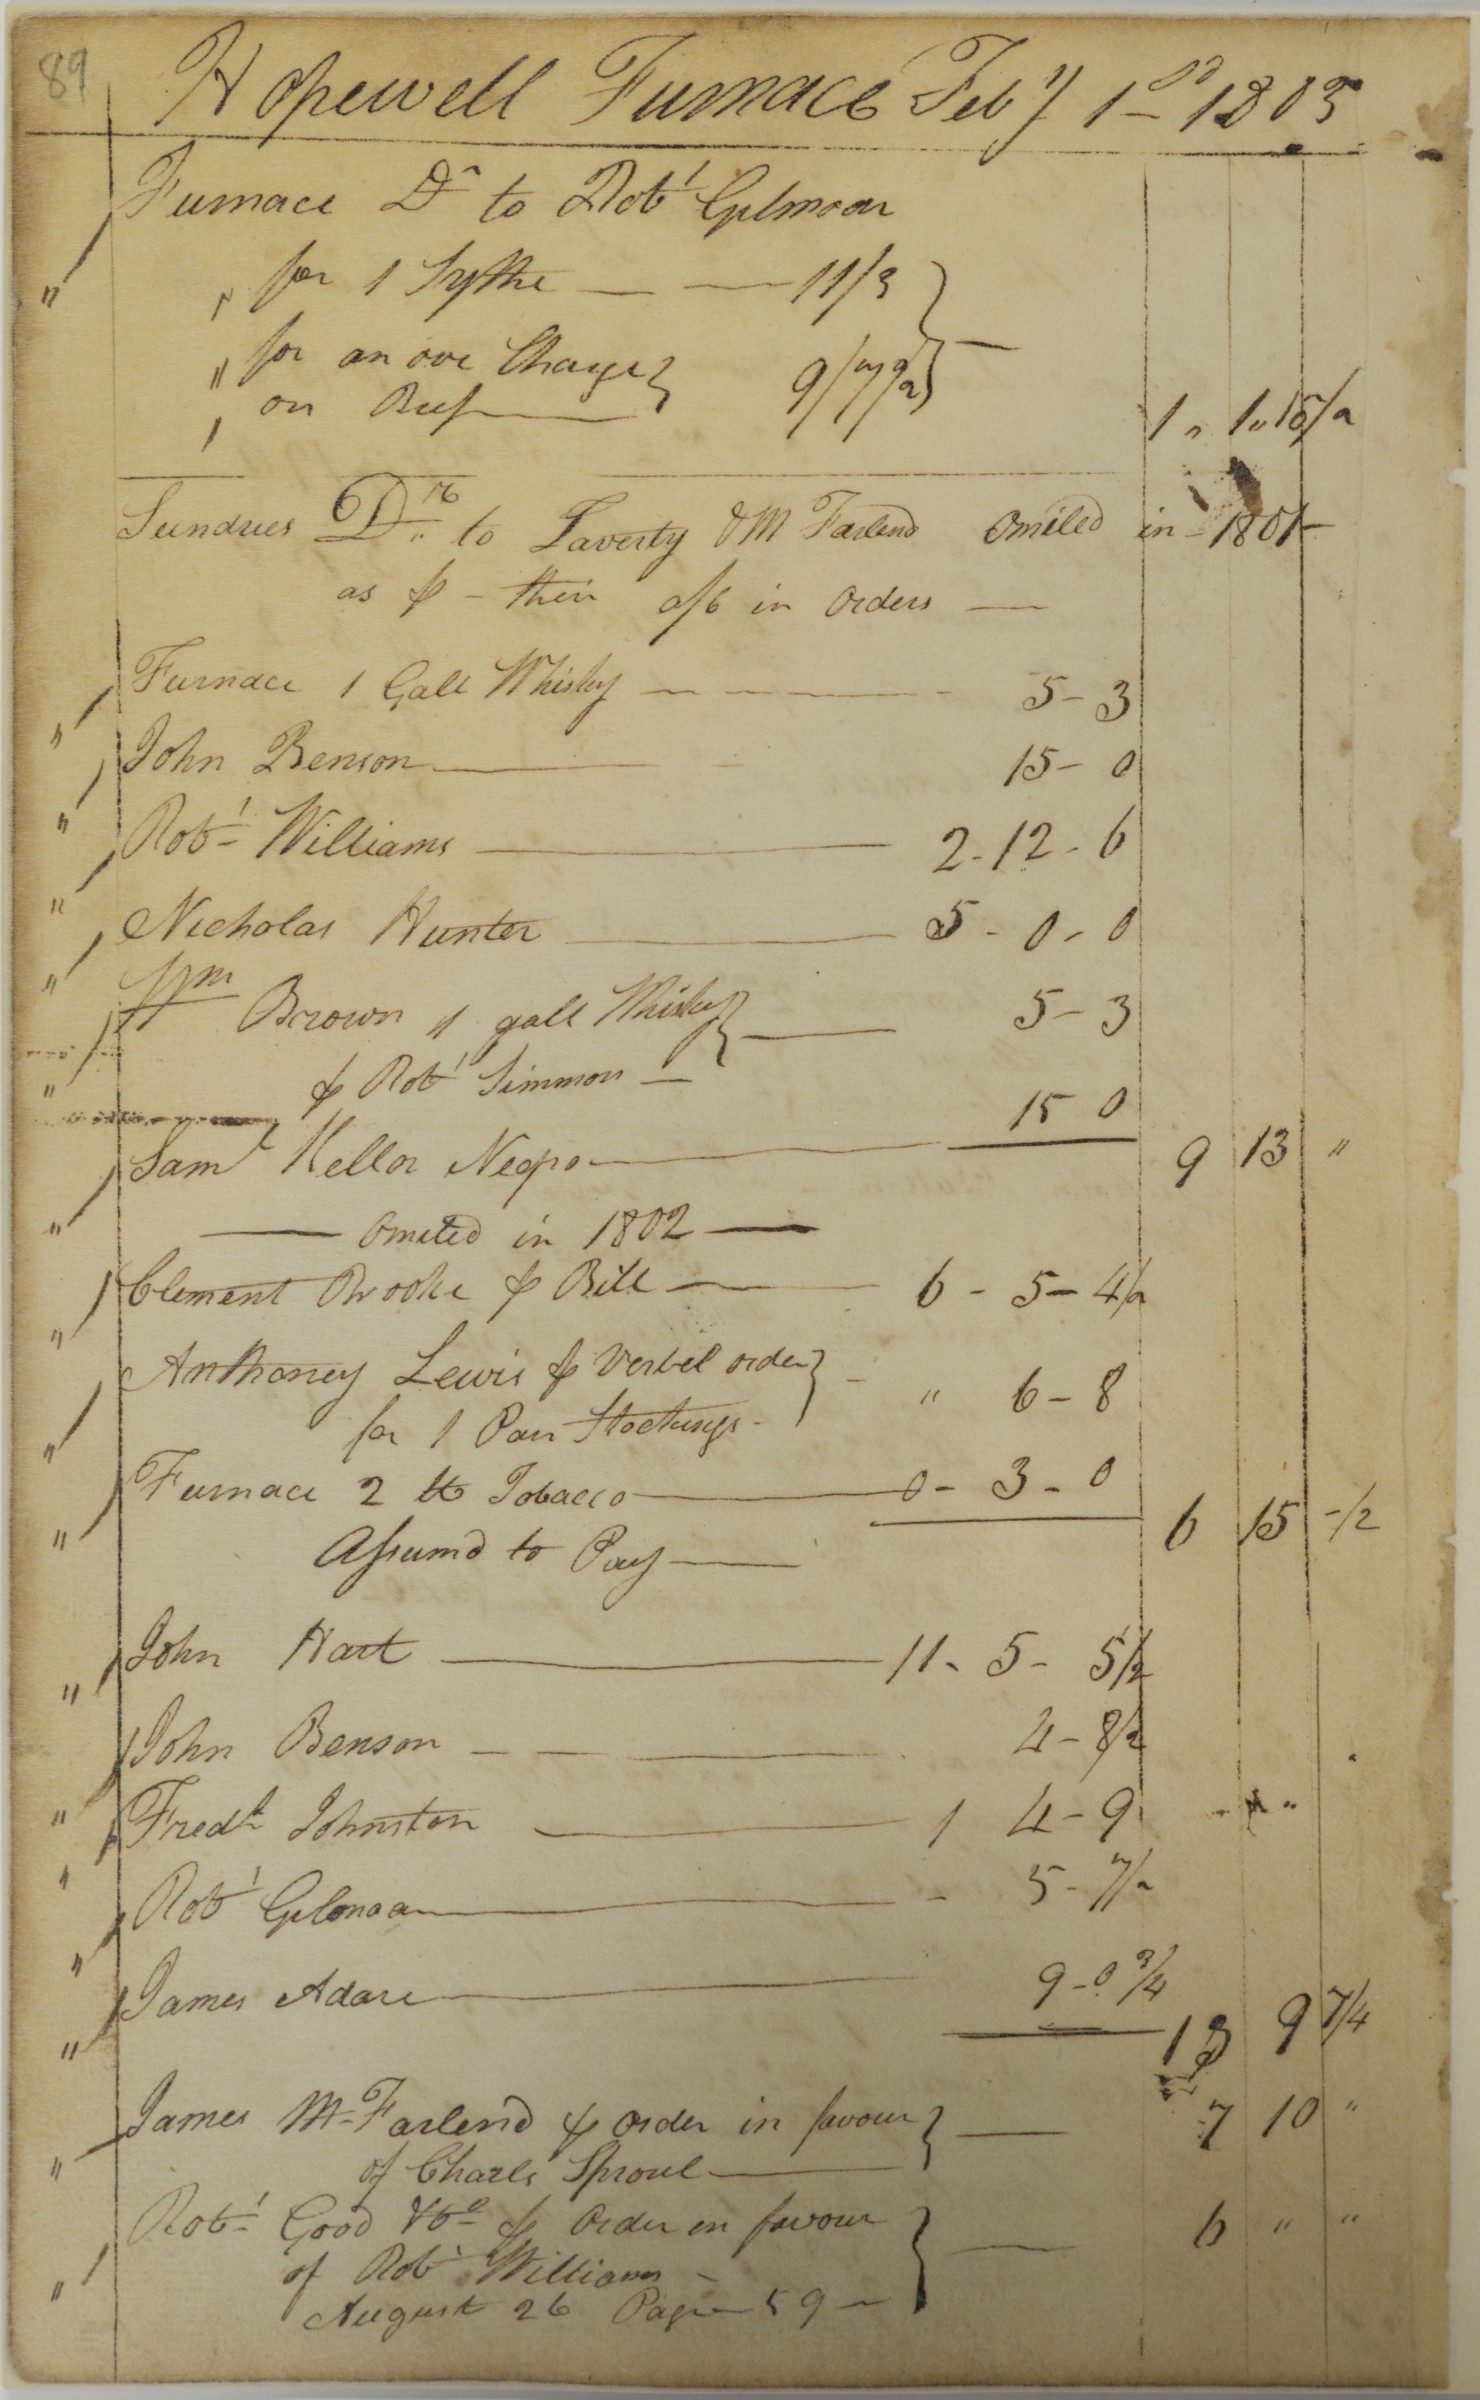 89
Hopewell Furnace Feby 1st 1803
Furnace Dr to Robt Gilmoor
" for 1 Sythe — — 11/3
" for an ove Charge 9/7 1/2
" on Beef —
1 " 1 " 10 1/2
Sundries Drs to Laverty & McFarlend Omited in 1801 —
as ⅌ - their a/c in Orders —
" Furnace 1 Gall Whisky — 5 - 3
" John Benson — 15 - 0
" Robt Williams — 2 - 12 - 6
" Nicholas Hunter — 5 - 0 - 0
" Wm Brown 1 gall Whisky — 5 - 3
⅌ Robt Simmon —
15 0
" Saml Kellor Negro — 9 13 "
— Omited in 1802 —
" Clement Brooke ⅌ Bill — 6 - 5 - 4/2
" Anthoney Lewis ⅌ Verbel order - " 6 - 8
for 1 Pair Stockings -
" Furnace 2 lb Tobacco — 0 - 3 - 0
6 15 -/2
Assumd to Pay —
" John Hart — 11 - 5 - 5/2
" John Benson — 4 - 8/2
" Fredk Johnston — 1 4 - 9
" Robt Gilmoor — - 5 - 7/2
" James Adare — 9 - 0 3/4
13 9 7/4
" James McFarlend ⅌ Order in favour — 7 10 "
of Charls Sproul —
" Robt Good & Co ⅌ Order in favour — 6 " "
of Robt Williams -
August 26 Page 59 —